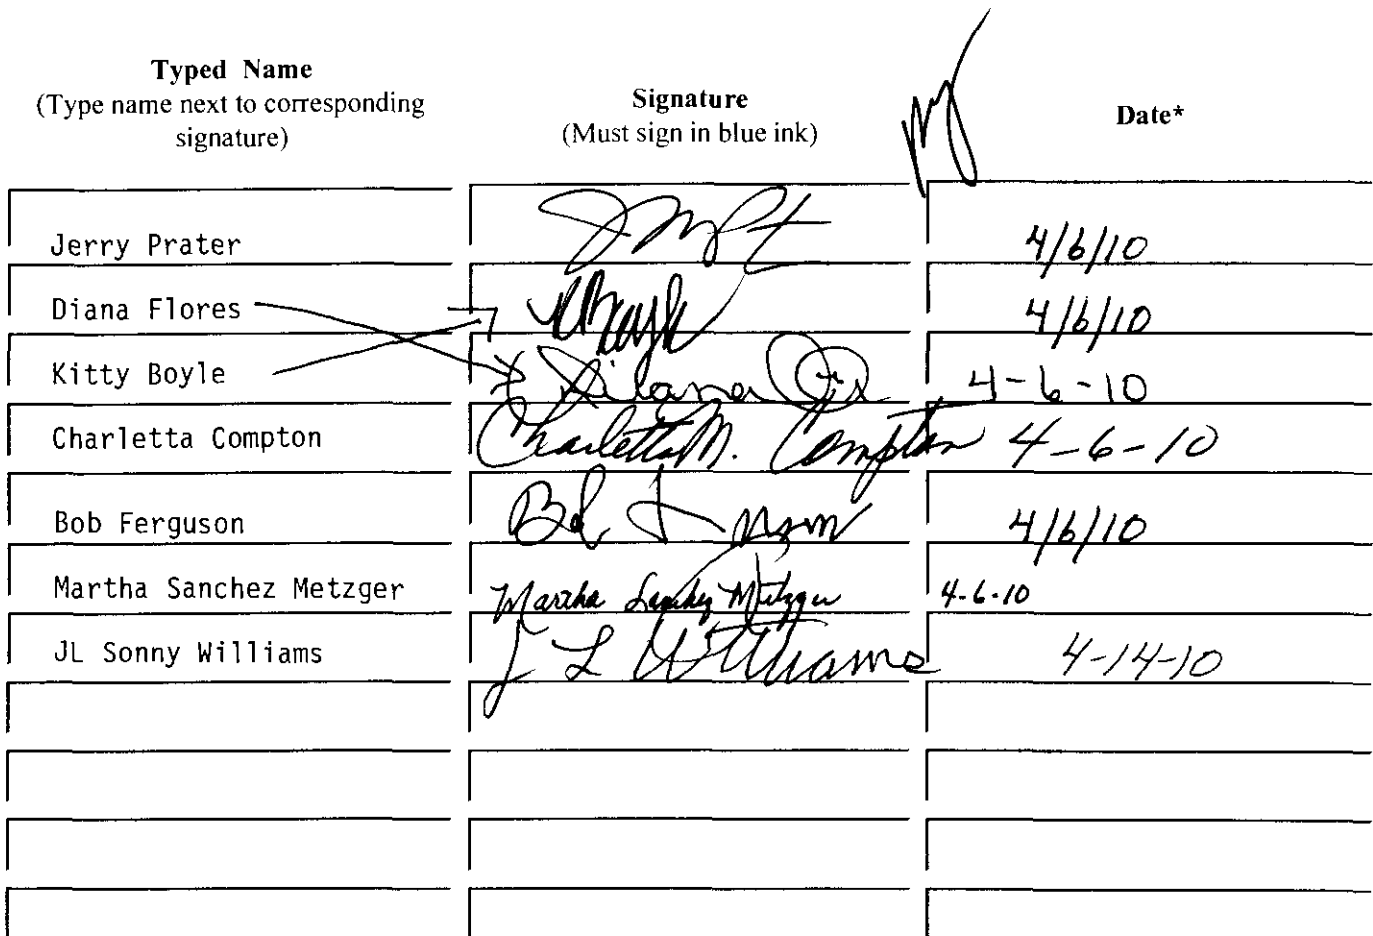 Typed Name
(Type name next to corresponding
signature)
Signature
(Must sign in blue ink)
Date*
Jerry Prater
4/6/10
Diana Flores
4/6/10
Kitty Boyle
4-6-10
Charletta Compton Charletta M. Compton 4-6-10
Bob Ferguson Bob
4/6/10
Martha Sanchez Metzger Martha Sanchez Metzger 4-6-10
JL Sonny Williams J L Williams 4-14-10